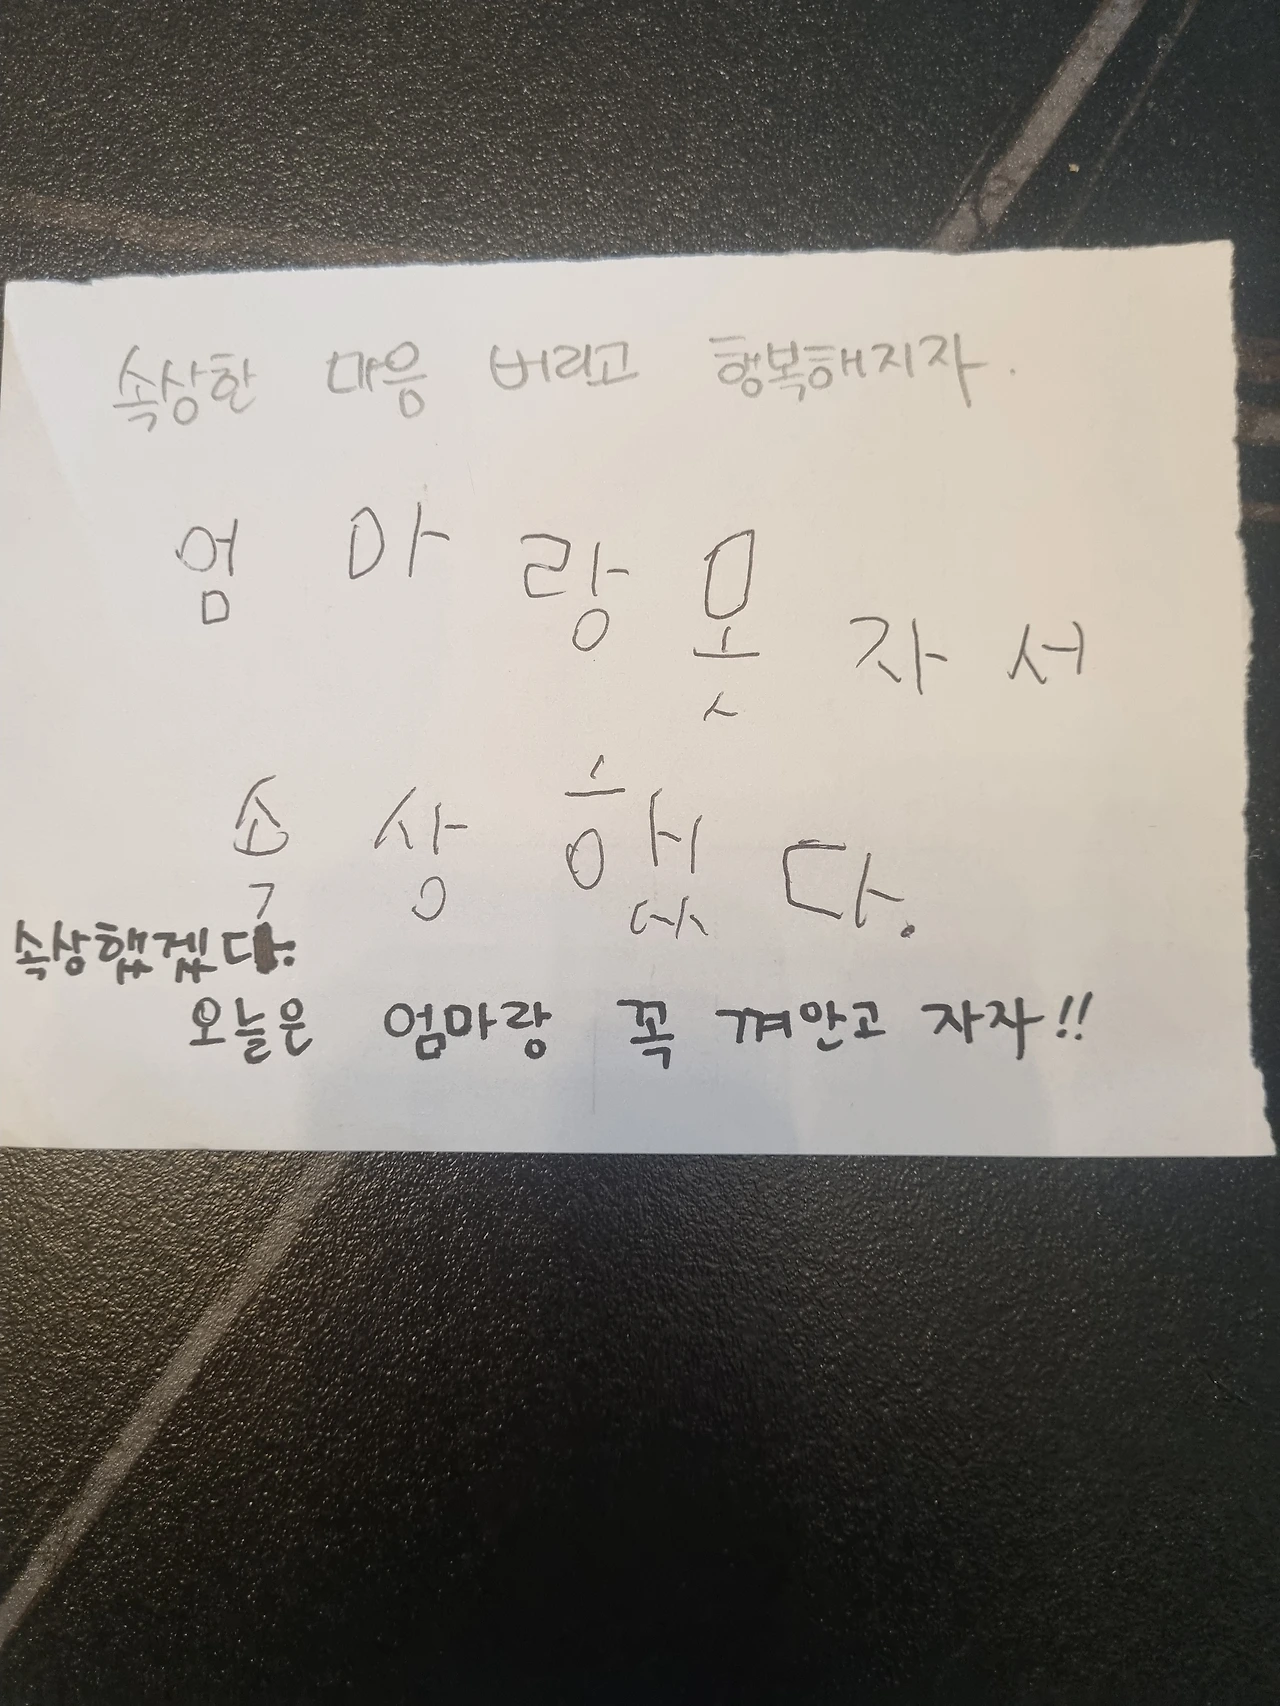 속상한 마음 버리고 행복해지자.
엄마랑못자서
속상했다.
속상했겠다.
오늘은 엄마랑 꼭 껴안고 자자!!